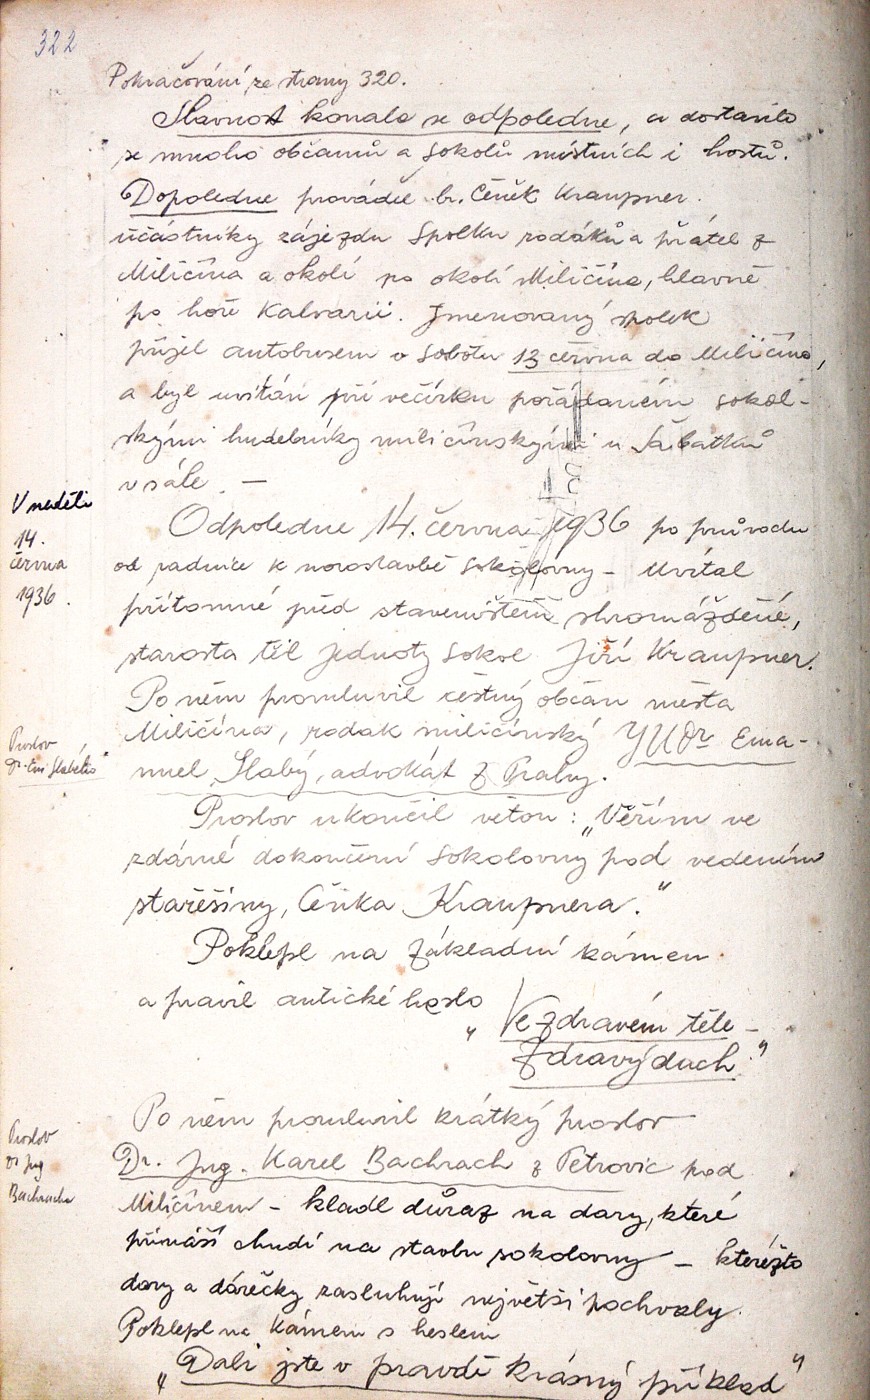 322
Pokračování ze strany 320.
Slavnost konala se odpoledne, a dostavilo
se mnoho občanů a sokolů místních i hostů.
Dopoledne prováděl br. Čeněk Kraupner
účastníky zájezdu Spolku rodáků a přátel z
Miličína a okolí po okolí Miličína, hlavně
po hoře Kalvarii. Jmenovaný spolek
přijel autobusem v sobotu 13 června do Miličína,
a byl uvítán při večírku pořádaném sokol-
skými hudebníky miličínskými u Sabatků
v sále. —
V neděli
14.
června
1936.
Odpoledne 14. června 1936 po průvodu
od radnice k novostavbě sokolovny – uvítal
přítomné před staveništěm shromážděné,
starosta těl. jednoty sokol Jiří Kraupner.
Po něm promluvil čestný občan města
Miličína, rodák miličínský JUDr Ema-
nuel Slabý, advokát z Prahy.
Proslov
Dr. Em. Slabého
Proslov ukončil větou: „Věřím ve
zdárné dokončení sokolovny pod vedením
stařešiny, Čeňka Kraupnera."
Poklepl na základní kámen
a pravil antické heslo
„Ve zdravém těle –
zdravý duch."
Proslov
Dr Jng
Bachracha
Po něm promluvil krátký proslov
Dr. Jng. Karel Bachrach z Petrovic pod
Miličínem – kladl důraz na dary, které
přináší chudí na stavbu sokolovny – kteréžto
dary a dárečky zasluhují největší pochvaly.
Poklepl na kámen s heslem
„Dali jste v pravdě krásný příklad"